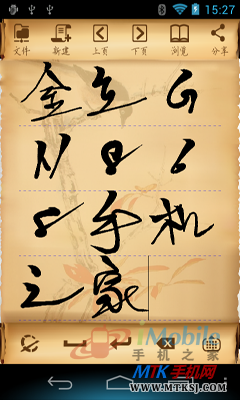 15:27
文件 新建 上页 下页 浏览 分享
金立G
N86
8手机
之家
Mobile
手机之家
MTK手机网
WWW.MTKSJ.COM